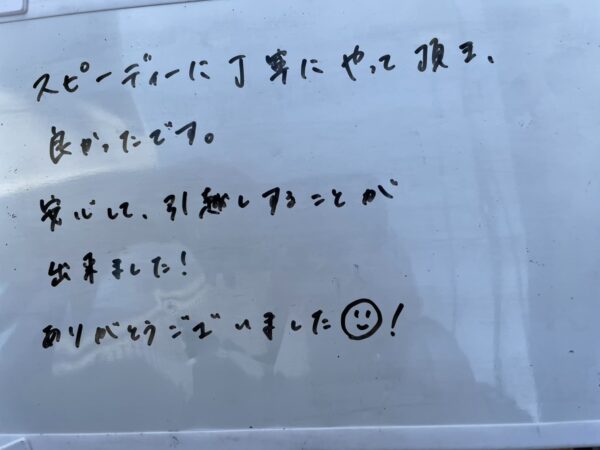 スピーディーに丁寧にやって頂き、
良かったです。
安心して、引越しすることが
出来ました!
ありがとうございました☺!